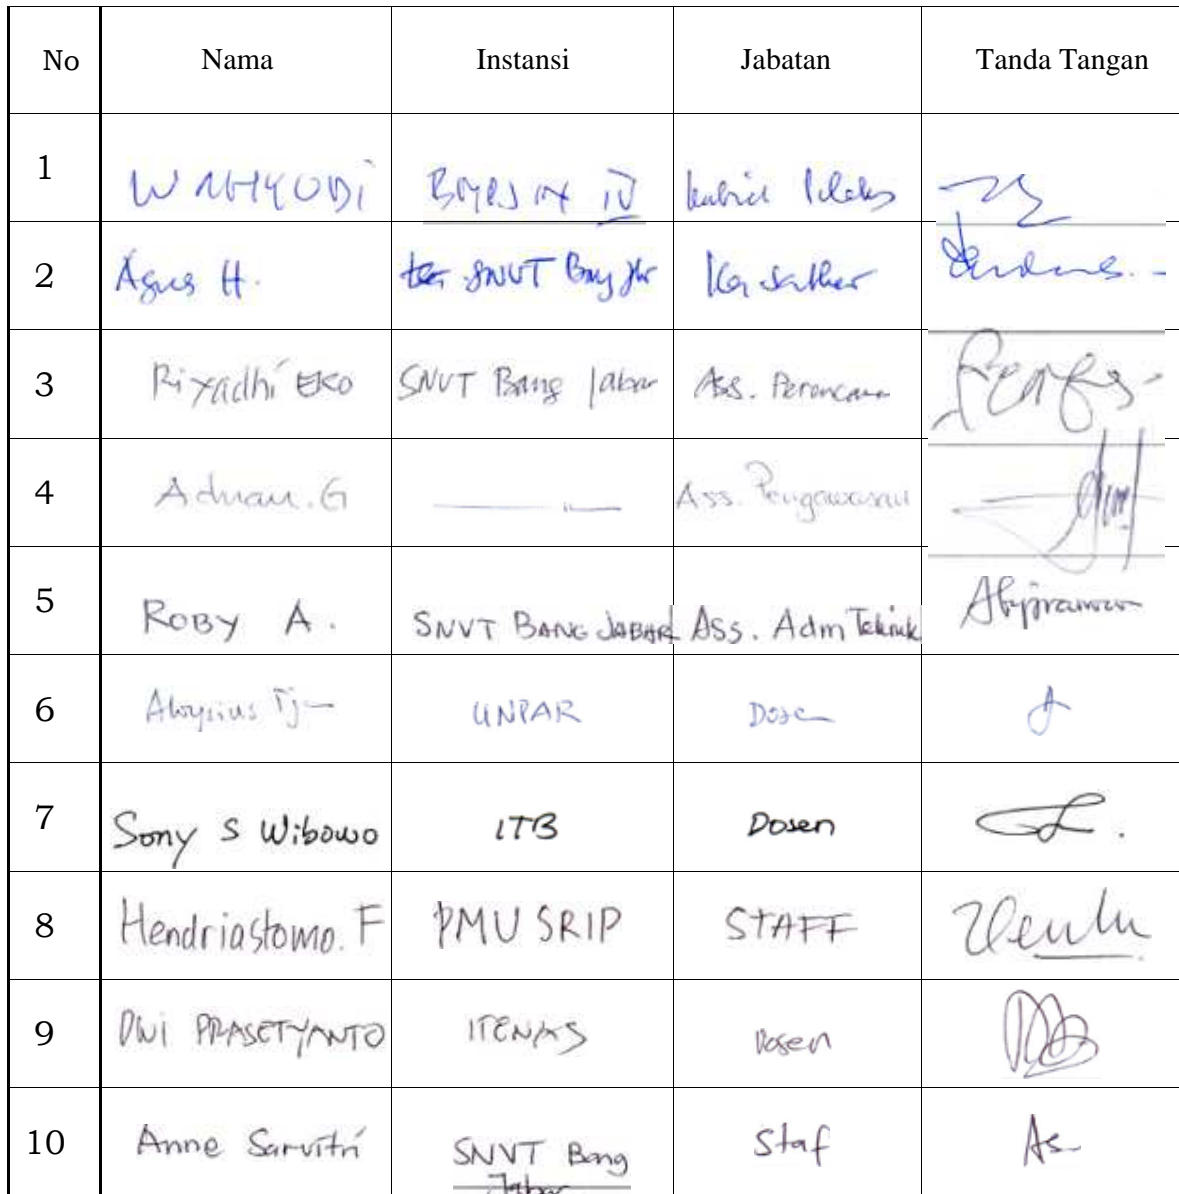 No Nama Instansi Jabatan Tanda Tangan
1 WAHYUDI IV Kabid
2 Agus H. SNVT Bang Jbr Ka Satker
3 Riyadhi EKO SNVT Bang Jabar Ass. Perencana
4 Adnan. G Ass. Pengawasan
5 ROBY A. SNVT BANG JABAR ASS. Adm Teknik
6 Aloysius Tj UNPAR Dosen
7 Sony S Wibowo ITB Dosen
8 Hendriastomo. F PMU SRIP STAFF
9 DWI PRASETYANTO ITENAS Dosen
10 Anne Sarvitri SNVT Bang Staf As
Jabar